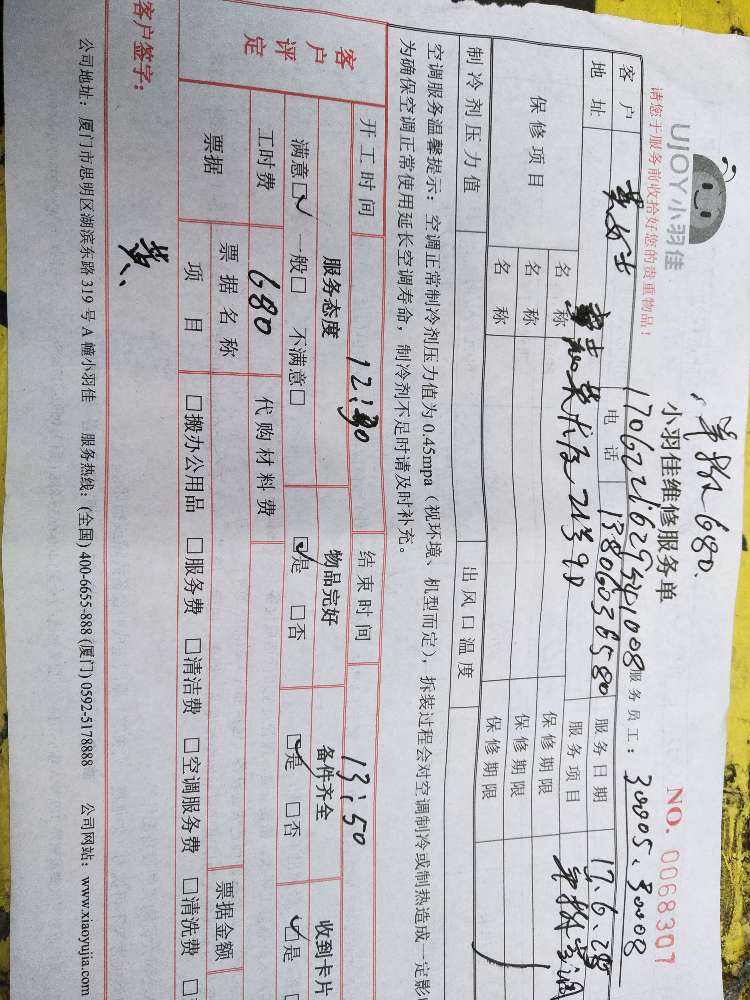 UJOY小羽佳
单拆680.
小羽佳维修服务单
NO. 0068307
请您于服务前收拾好您的贵重物品!
服务员工: 30005.30008
客户
电话
13806036580
服务日期
17.6.28
地址
21号9D
服务项目
单拆空调
保修项目
名称
保修期限
名称
保修期限
名称
保修期限
制冷剂压力值
出风口温度
空调服务温馨提示: 空调正常制冷剂压力值为 0.45mpa (视环境、机型而定), 拆装过程会对空调制冷或制热造成一定影
为确保空调正常使用延长空调寿命, 制冷剂不足时请及时补充。
开工时间
12:30
结束时间
13:50
客户评定
服务态度
物品完好
备件齐全
收到卡片
满意☑ 一般□ 不满意□
☑是 □否
☑是 □否
☑是
工时费
680
代购材料费
票据
票据名称
票据金额
项目
□搬办公用品 □服务费 □清洁费 □空调服务费 □清洗费
客户签字:
黄
公司地址: 厦门市思明区湖滨东路 319 号 A 幢小羽佳 服务热线: (全国) 400-6655-888 (厦门) 0592-5178888 公司网站: www.xiaoyujia.com